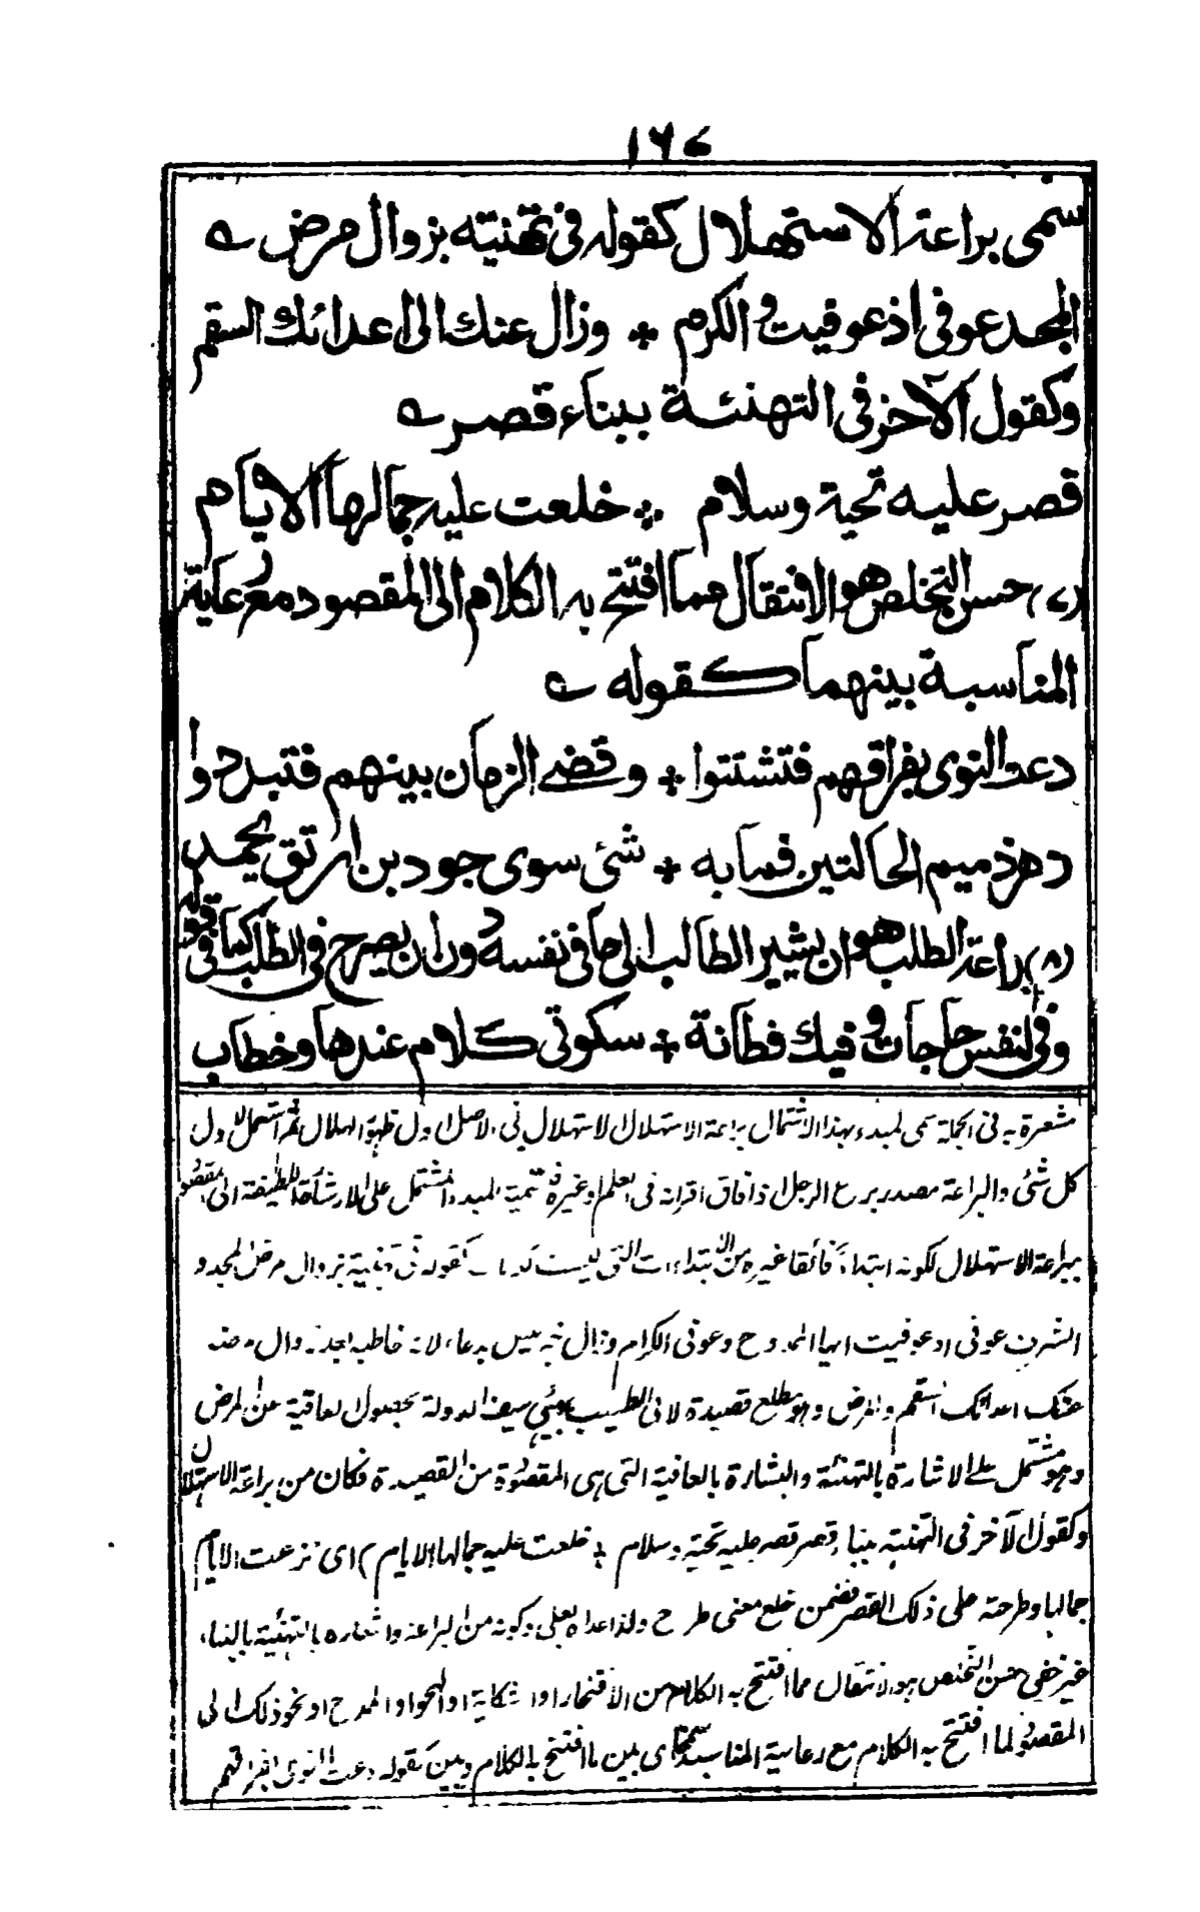 ١٦٧
سمى براعة الاستهلال كقوله في تهنيته بزوال مرض ے
المجد عوفى اذ عوفيت والكرم * وزال عنك الى اعدائك السقم
وكقول الآخر في التهنئة ببناء قصر ے
قصر عليه تحية وسلام ٭ خلعت عليه جمالها الايام
(٧) حسن التخلص هو الانتقال مما افتتح به الكلام الى المقصود مع رعاية
المناسبة بينهما كقوله ے
دعت النوى بفراقهم فتشتتوا * وقضے الزمان بينهم فتبددوا
دهر ذميم الحالتين فما به * شئ سوى جود بن ارتق يحمد
(٨) براعة الطلب هو ان يشير الطالب الى ما في نفسه دون ان يصرح في الطلب كما في قوله
وفي النفس حاجات وفيك فطانة * سكوتى كلام عندها وخطاب
مشعرة به فى الجملة سمى المبدء بهذا الاشتمال براعة الاستهلال الاستهلال فى الاصل اول ظهور الهلال ثم استعمل لاول
كل شئ والبراعة مصدر برع الرجل اذا فاق اقرانه فى العلم او غيره فتسمية المبدء المشتمل على الاشارة اللطيفة الى المقصود
ببراعة الاستهلال لكونه ابتداءً فائقا غيره من الابتداءات التى ليست كقوله فى تهنية بزوال مرض المجد و
الشرف عوفى اذ عوفيت ايها الممدوح وعوفى الكرام وزال خبر ليس بدعاء لانه خاطبه
عنك اعدائك السقم والمرض وهو مطلع قصيدة لابى الطيب يهنئ سيف الدولة بحصول العافية عن المرض
وهو مشتمل على الاشارة بالتهنئة والبشارة بالعافية التى هى المقصودة من القصيدة فكان من براعة الاستهلال
وكقول الآخر فى التهنية ببناء قصر قصر عليه تحية وسلام ٭ خلعت عليه جمالها الايام) اى نزعت الايام
جمالها وطرحته على ذلك القصر فضمن خلع معنى طرح ولذا عداه بعلى وكونه من البراعة واشعاره بالتهنية بالبناء
غير خفى حسن التخلص هو الانتقال مما افتتح به الكلام من الافتخار او الشكاية او الهجو او المدح او نحو ذلك الى
المقصود لما افتتح به الكلام مع رعاية المناسبة بينهما اى بين ما افتتح به الكلام وبين كقوله دعت النوى بفراقهم